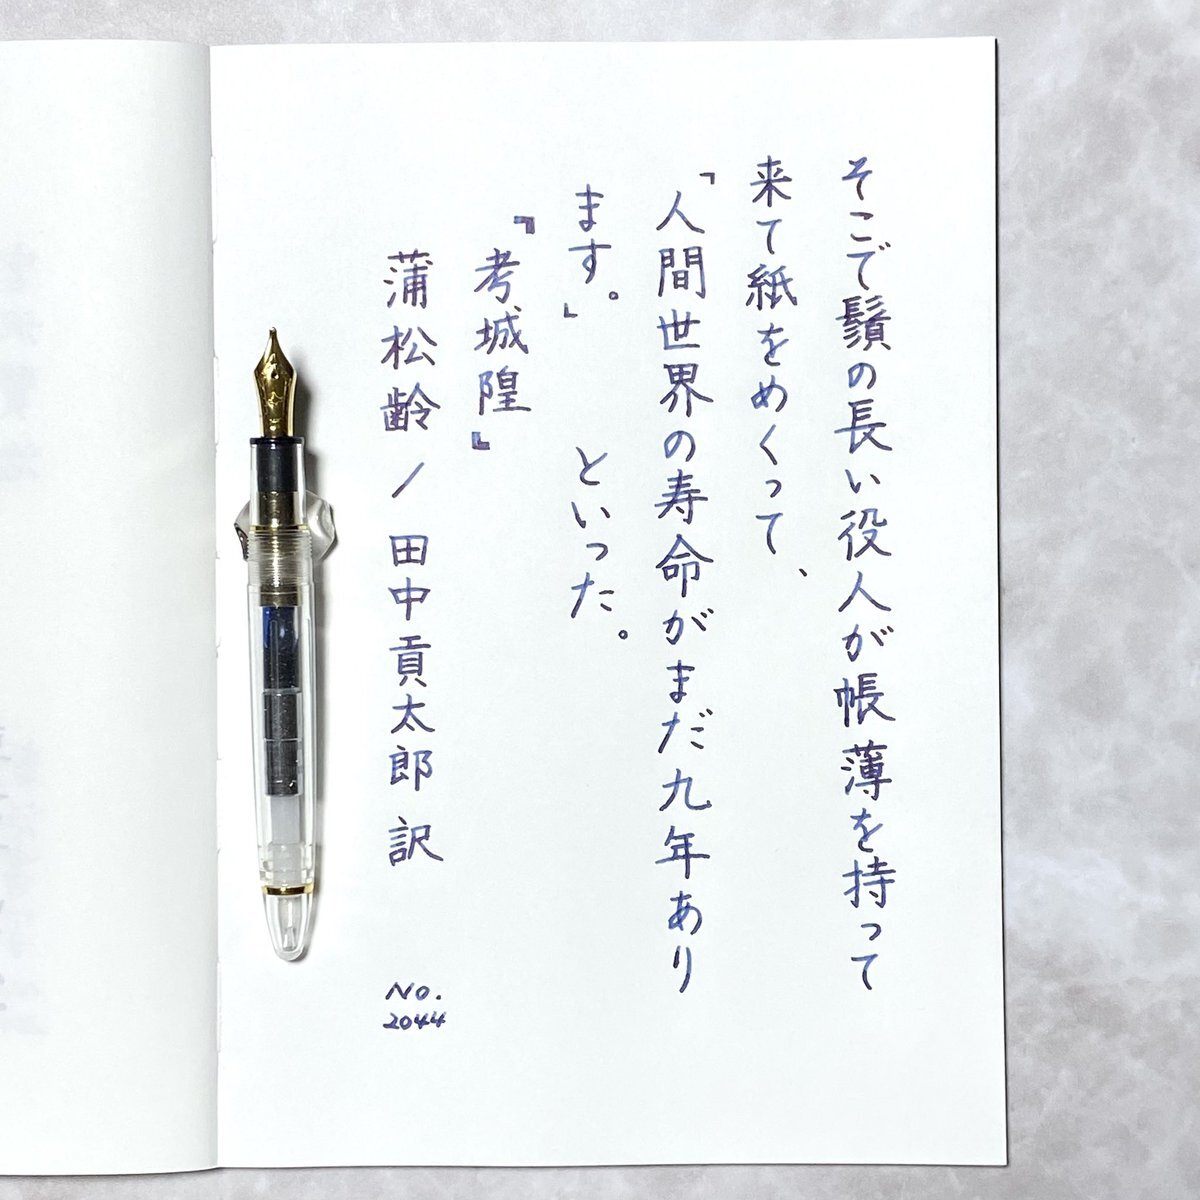 そこで鬚の長い役人が帳薄を持って
来て紙をめくって、
「人間世界の寿命がまだ九年あり
ます。」 といった。
『考城隍』
蒲松齢/田中貢太郎 訳
No.
2044